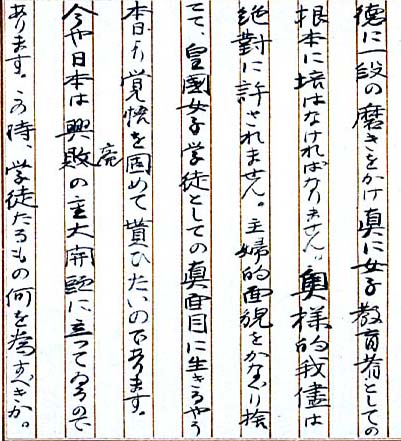 徳に一段の磨きをかけ真に女子教育者としての
根本に培はなければなりません。奥様的我儘は
絶対に許されません。主婦的面貌をかなぐり捨
てて、皇國女子学徒としての真面目に生きるやう
本日より覚悟を固めて貰ひたいのであります。
今や日本は興敗の重大関頭に立つてゐるので
廃
あります。この時、学徒たるもの何を為すべきか。